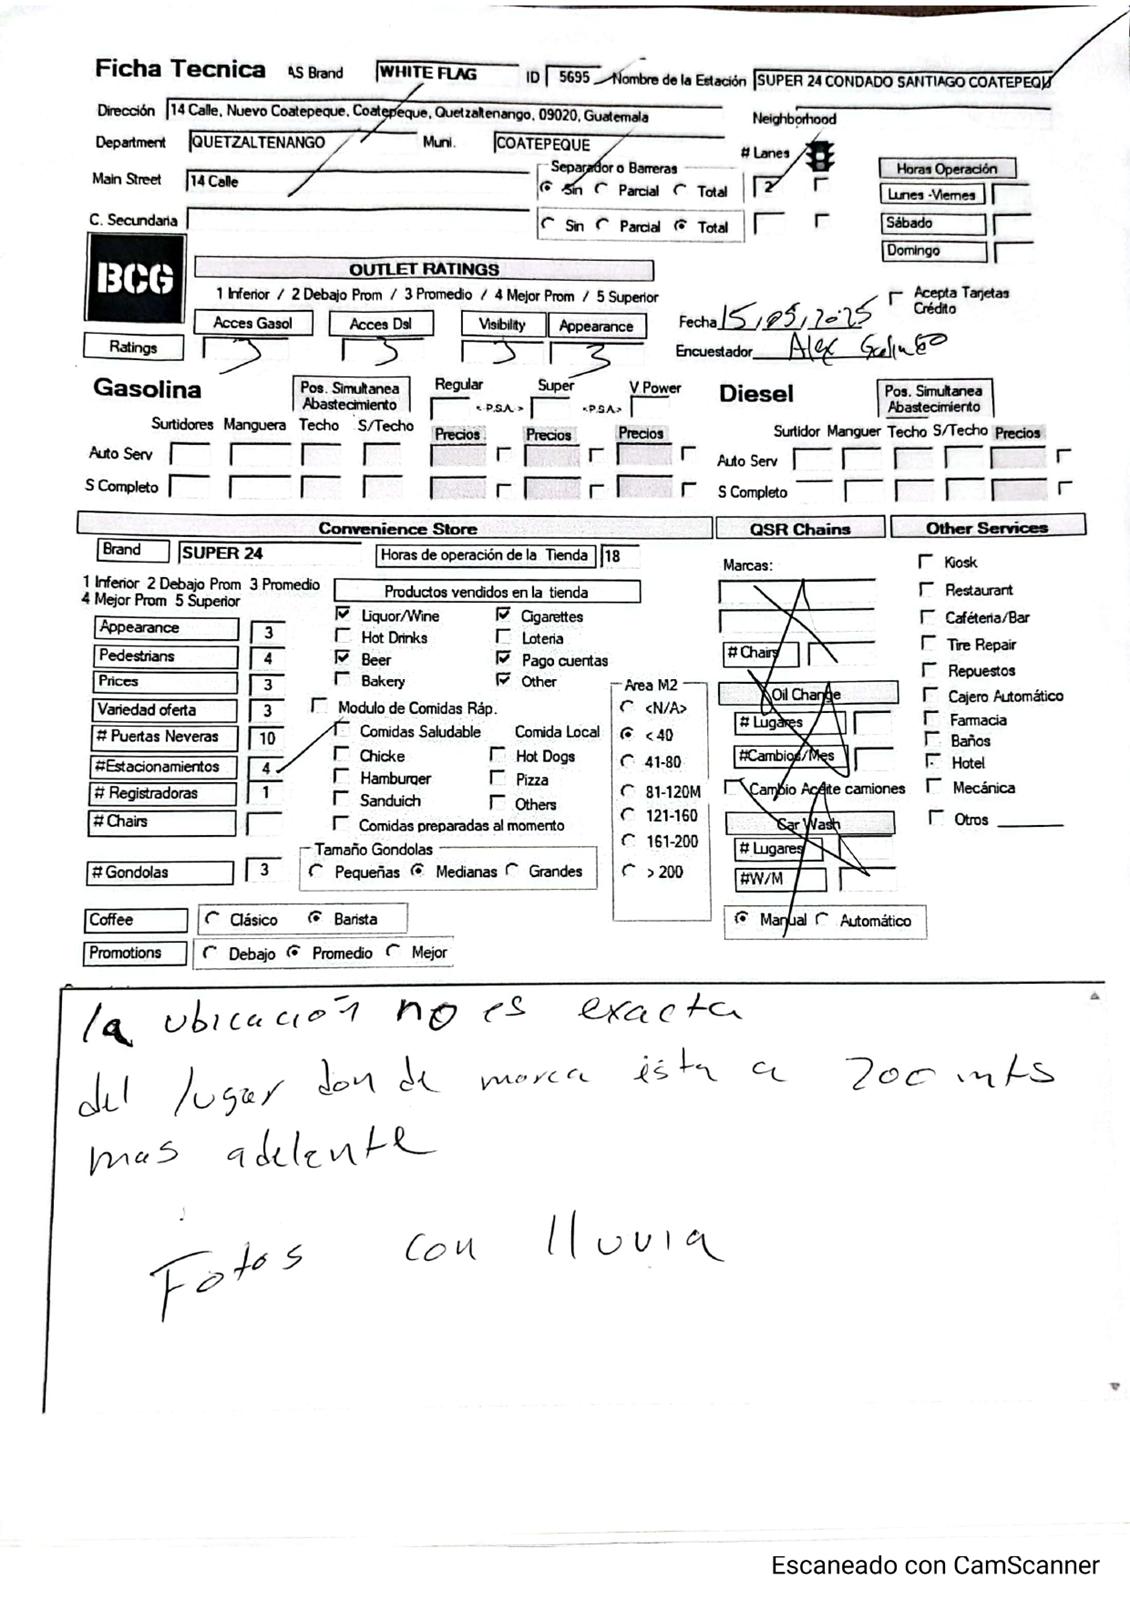 Ficha Tecnica AS Brand WHITE FLAG ID 5695 Nombre de la Estación SUPER 24 CONDADO SANTIAGO COATEPEQU
Dirección 14 Calle, Nuevo Coatepeque, Coatepeque, Quetzaltenango, 09020, Guatemala Neighborhood
Department QUETZALTENANGO Muni. COATEPEQUE
Main Street 14 Calle Separador o Barreras Sin Parcial Total # Lanes 2
C. Secundaria Sin Parcial Total
Horas Operación
Lunes -Viernes
Sábado
Domingo
BCG
OUTLET RATINGS
1 Inferior / 2 Debajo Prom / 3 Promedio / 4 Mejor Prom / 5 Superior
Acces Gasol Acces Dsl Visibility Appearance
Ratings 3 3 3 3
Acepta Tarjetas
Crédito
Fecha 15/05/2025
Encuestador Alex
Gasolina Pos. Simultanea Abastecimiento Regular Super V Power
< P.S.A. > <P.S.A>
Surtidores Manguera Techo S/Techo Precios Precios Precios
Auto Serv
S Completo
Diesel Pos. Simultanea Abastecimiento
Surtidor Manguer Techo S/Techo Precios
Auto Serv
S Completo
Convenience Store
Brand SUPER 24 Horas de operación de la Tienda 18
1 Inferior 2 Debajo Prom 3 Promedio
4 Mejor Prom 5 Superior
Appearance 3
Pedestrians 4
Prices 3
Variedad oferta 3
# Puertas Neveras 10
#Estacionamientos 4
# Registradoras 1
# Chairs
# Gondolas 3
Productos vendidos en la tienda
Liquor/Wine Cigarettes
Hot Drinks Loteria
Beer Pago cuentas
Bakery Other
Modulo de Comidas Ráp.
Comidas Saludable Comida Local
Chicke Hot Dogs
Hamburger Pizza
Sanduich Others
Comidas preparadas al momento
Tamaño Gondolas
Pequeñas Medianas Grandes
Area M2
<N/A>
< 40
41-80
81-120M
121-160
161-200
> 200
Coffee Clásico Barista
Promotions Debajo Promedio Mejor
QSR Chains
Marcas:
# Chairs
Oil Change
# Lugares
#Cambios/Mes
Cambio Aceite camiones
Car Wash
# Lugares
#W/M
Manual Automático
Other Services
Kiosk
Restaurant
Caféteria/Bar
Tire Repair
Repuestos
Cajero Automático
Farmacia
Baños
Hotel
Mecánica
Otros
la ubicación no es exacta
del lugar donde marca ésta a 200 mts
mas adelante
Fotos con lluvia
Escaneado con CamScanner